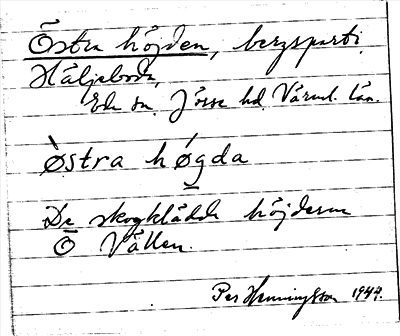 Östra höjden, bergsparti
Häljeboda,
Eda sn. Jösse hd. Värml. län.
òstra hógda
De skogklädda höjderna
Ö Vällen.
Per Henningsson 1944.